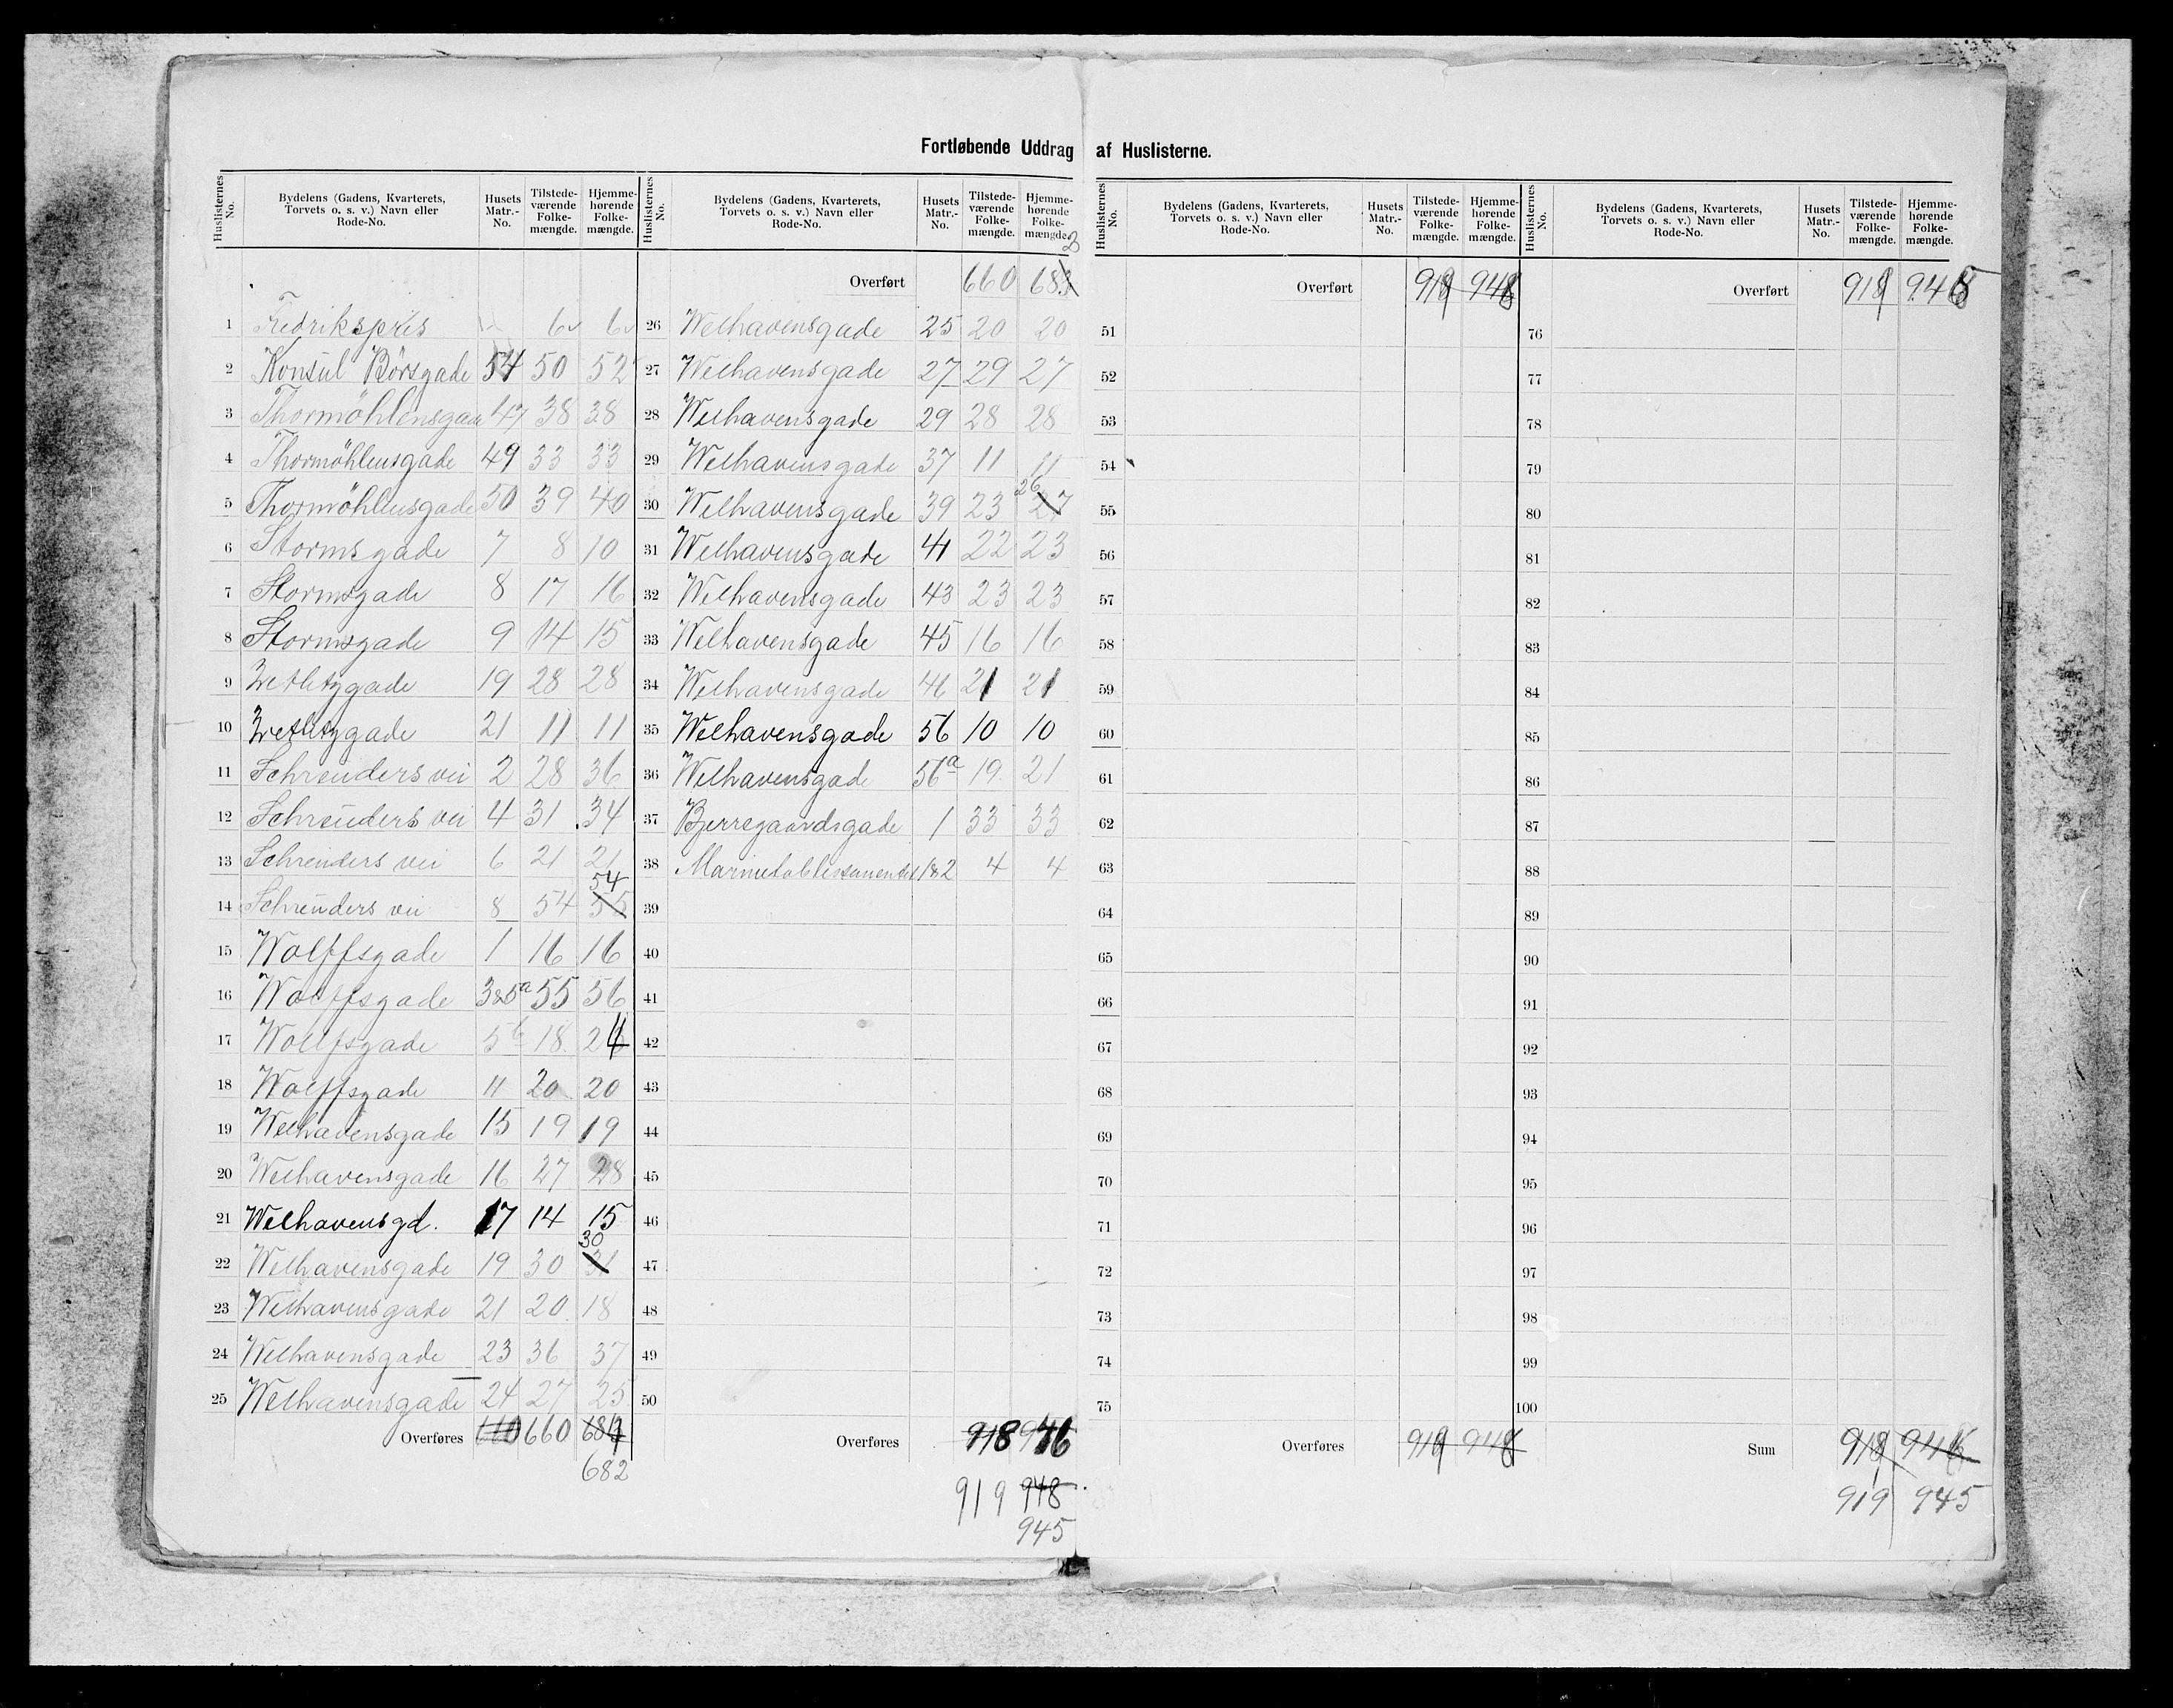 Fortløbende Uddrag af Huslisterne.
Huslisternes No. Bydelens (Gadens, Kvarterets, Torvets o. s. v.) Navn eller Rode-No. Husets Matr.-No. Tilstede-værende Folke-mængde. Hjemme-hørende Folke-mængde.
1 Fredrikspris 6 6
2 Konsul Börsgade 54 50 52
3 Thormöhlensgade 47 38 38
4 Thormöhlensgade 49 33 33
5 Thormöhlensgade 50 39 40
6 Stormsgade 7 8 10
7 Stormsgade 8 17 16
8 Stormsgade 9 14 15
9 Zetlitzgade 19 28 28
10 Zetlitzgade 21 11 11
11 Schreuders vei 2 28 36
12 Schreuders vei 4 31 34
13 Schreuders vei 6 21 21
14 Schreuders vei 8 54 55 54
15 Wolffsgade 1 16 16
16 Wolffsgade 3&5a 55 56
17 Wolffsgade 5b 18 24
18 Wolffsgade 11 20 20
19 Welhavensgade 15 19 19
20 Welhavensgade 16 27 28
21 Welhavensgd. 17 14 15
22 Welhavensgade 19 30 31 30
23 Welhavensgade 21 20 18
24 Welhavensgade 23 36 37
25 Welhavensgade 24 27 25
Overføres 660
682
Huslisternes No. Bydelens (Gadens, Kvarterets, Torvets o. s. v.) Navn eller Rode-No. Husets Matr.-No. Tilstede-værende Folke-mængde. Hjemme-hørende Folke-mængde.
Overført 660 683 2
26 Welhavensgade 25 20 20
27 Welhavensgade 27 29 27
28 Welhavensgade 29 28 28
29 Welhavensgade 37 11 11
30 Welhavensgade 39 23 27 26
31 Welhavensgade 41 22 23
32 Welhavensgade 43 23 23
33 Welhavensgade 45 16 16
34 Welhavensgade 46 21 21
35 Welhavensgade 56 10 10
36 Welhavensgade 56a 19 21
37 Bjerregaardsgade 1 33 33
38 Marineetablissementet 1&2 4 4
39
40
41
42
43
44
45
46
47
48
49
50
Overføres 918 946
919 948
945
Huslisternes No. Bydelens (Gadens, Kvarterets, Torvets o. s. v.) Navn eller Rode-No. Husets Matr.-No. Tilstede-værende Folke-mængde. Hjemme-hørende Folke-mængde.
Overført 919 948
51
52
53
54
55
56
57
58
59
60
61
62
63
64
65
66
67
68
69
70
71
72
73
74
75
Overføres 919 948
Huslisternes No. Bydelens (Gadens, Kvarterets, Torvets o. s. v.) Navn eller Rode-No. Husets Matr.-No. Tilstede-værende Folke-mængde. Hjemme-hørende Folke-mængde.
Overført 919 945
76
77
78
79
80
81
82
83
84
85
86
87
88
89
90
91
92
93
94
95
96
97
98
99
100
Sum 918 946
919 945